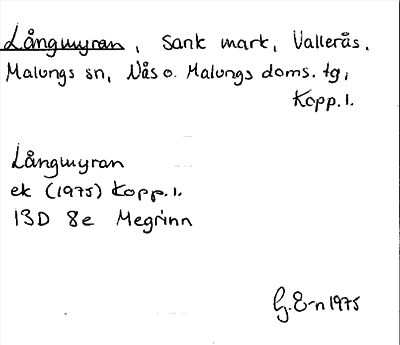 Långmyran, Sank mark, Vallerås,
Malungs sn, Nås o. Malungs doms. tg,
Kopp. l.
Långmyran
ek (1975) Kopp. l.
13D 8e Megrinn
G. E-n 1975